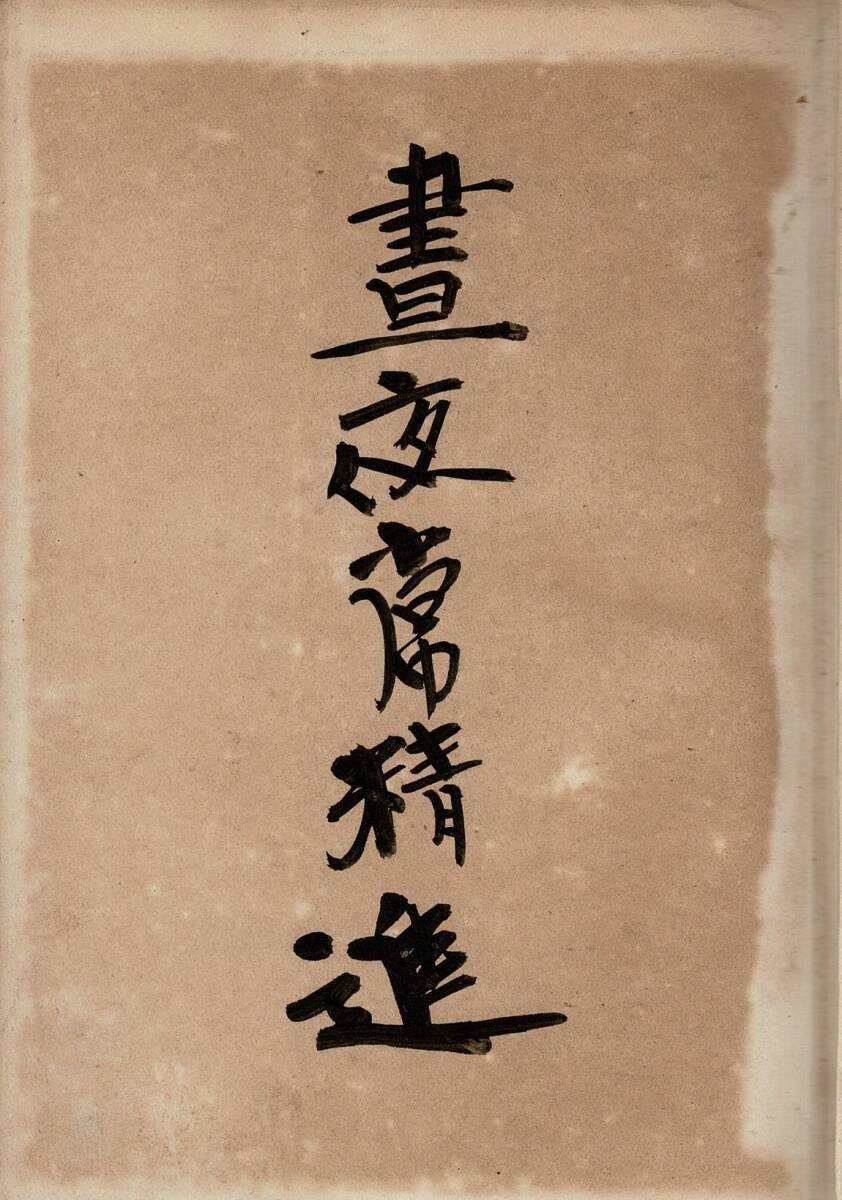 晝夜常精進